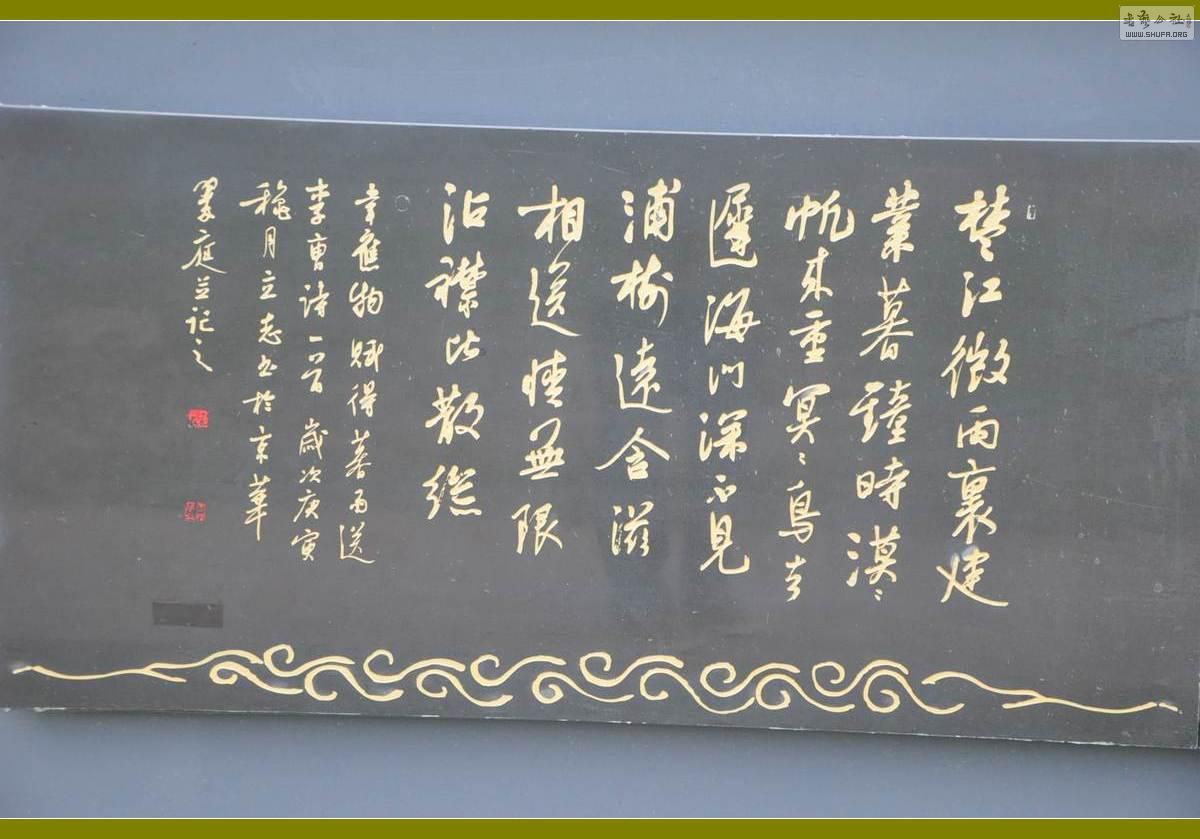 楚江微雨裏建
業暮鐘時漠〻
帆來重冥〻鳥去
遲海門深不見
浦樹遠含滋
相送情無限
沾襟比散絲
韋應物賦得暮雨送
李曹詩一首歲次庚寅
穐月立志書於京華
庭並記之
書藝公社
WWW.SHUFA.ORG